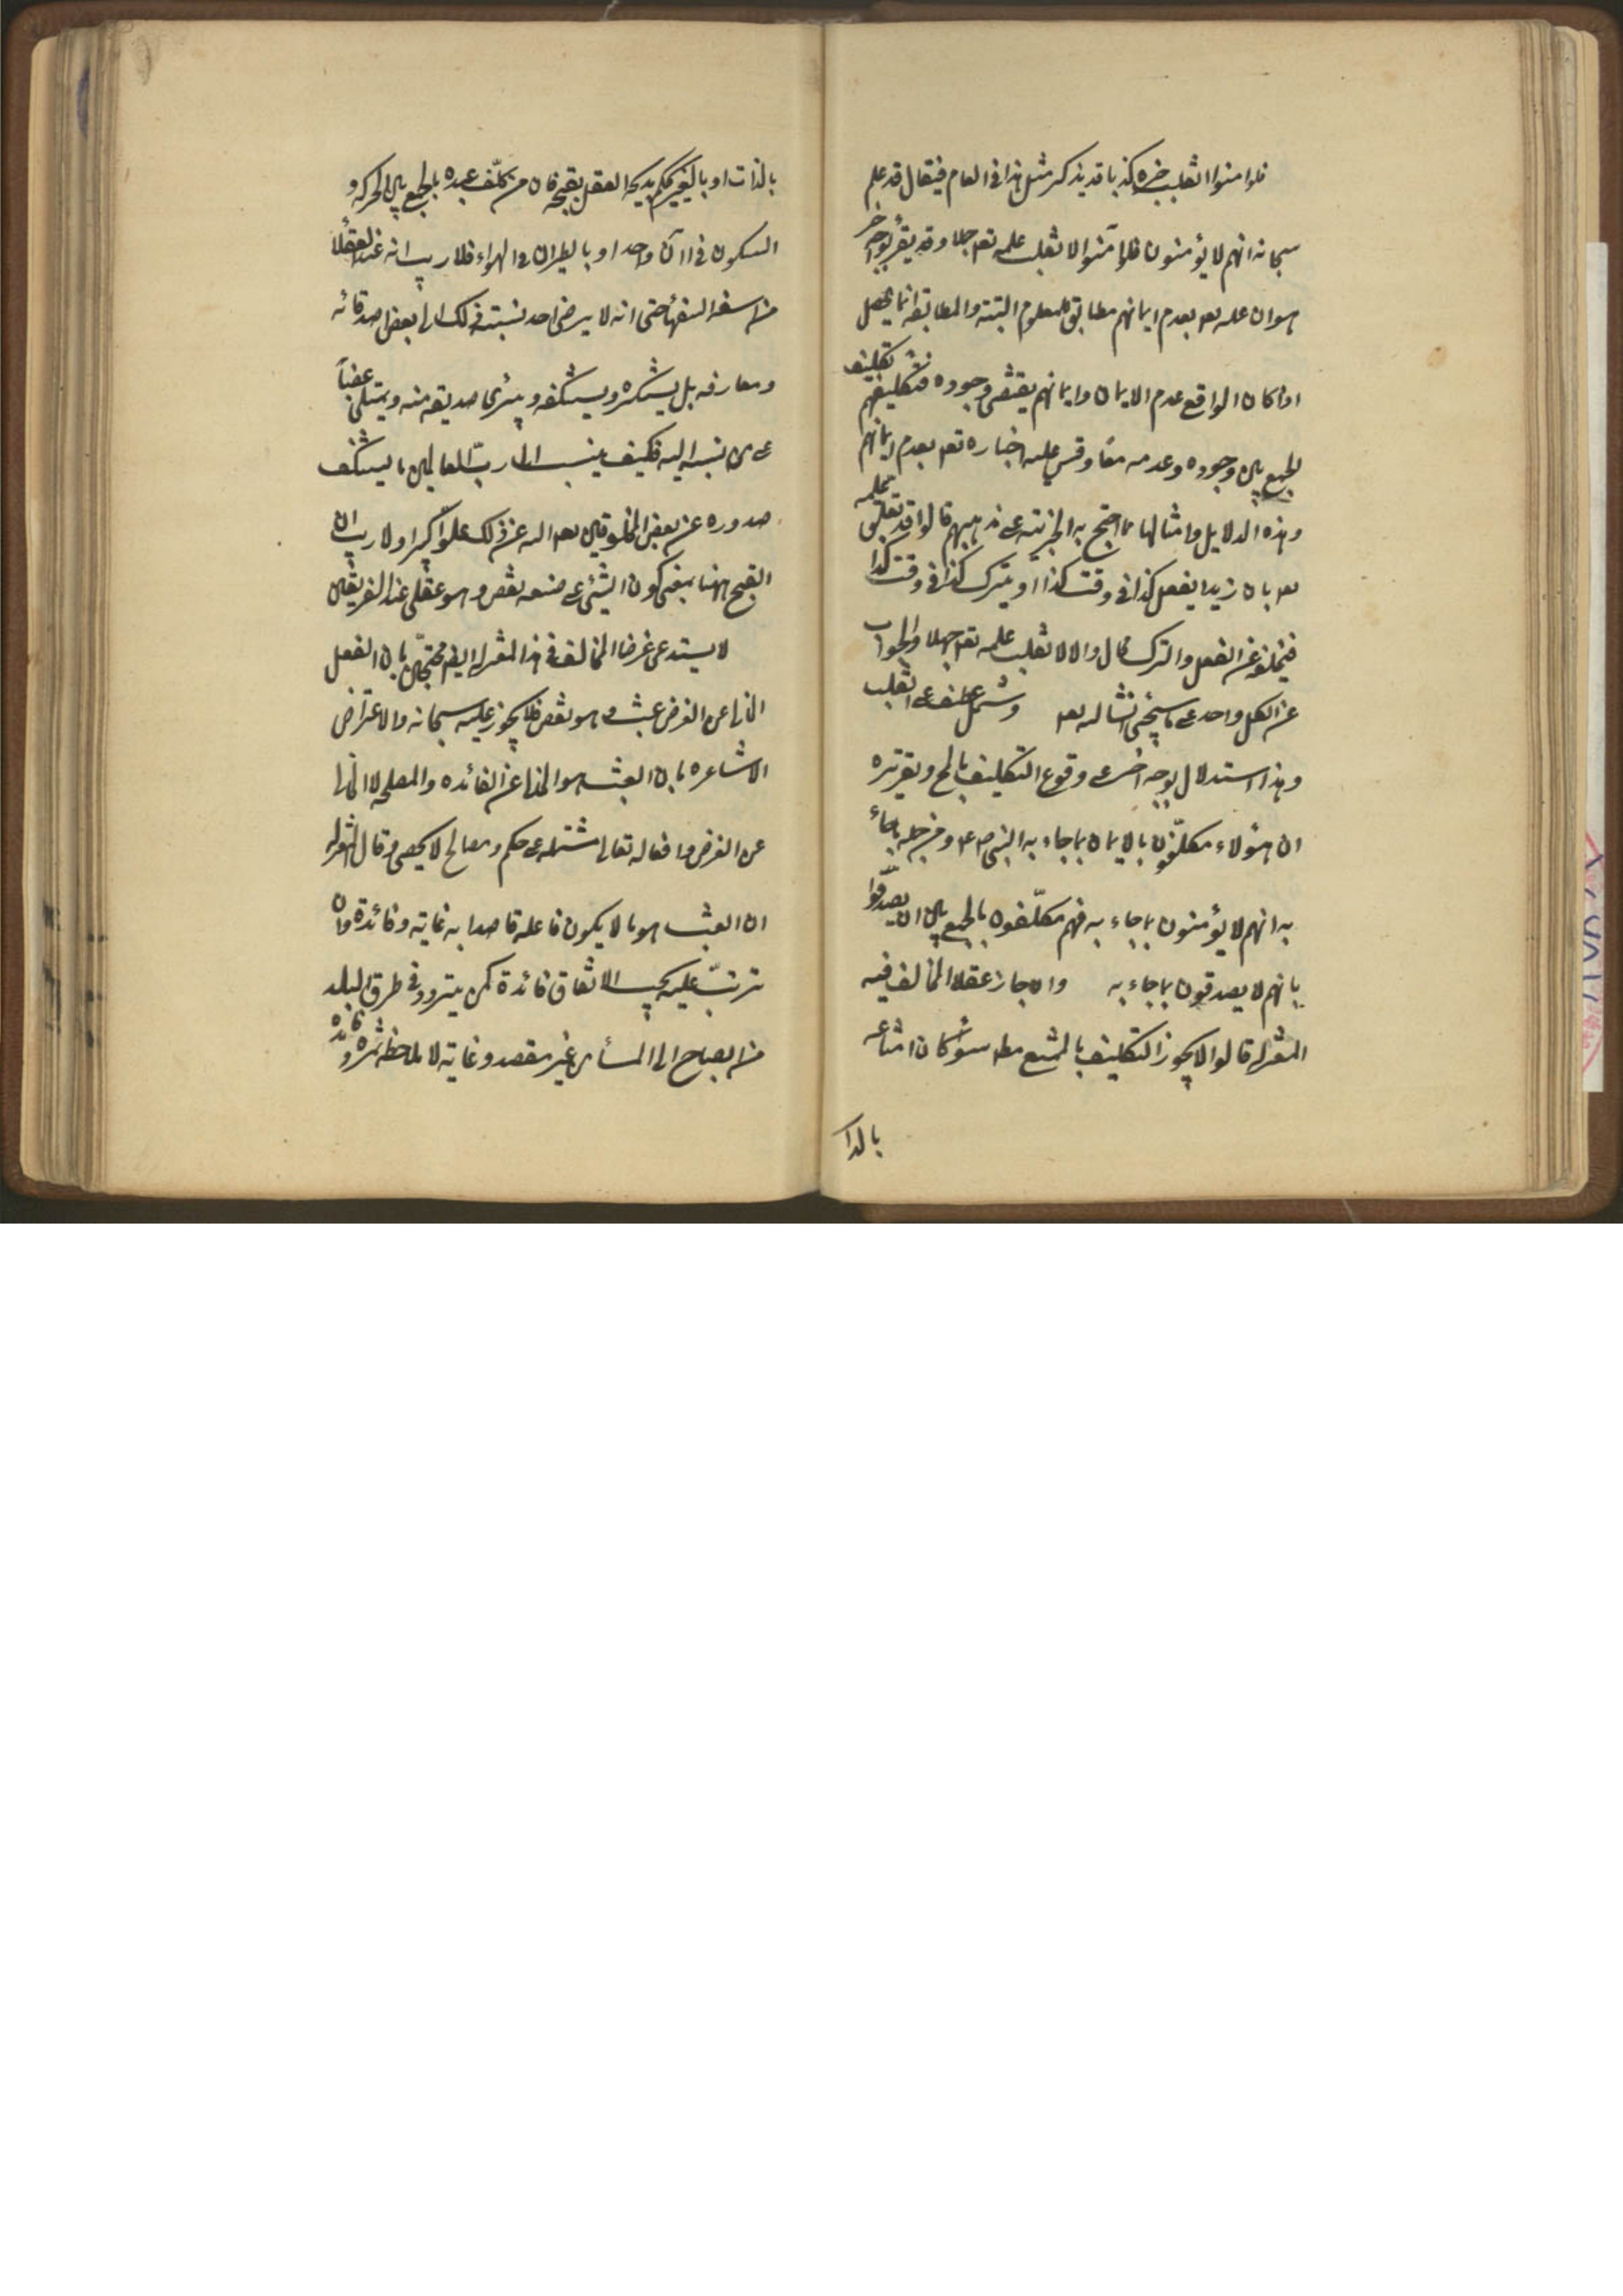 فلو امنوا انقلب خبره كذبا قد يذكر مثل هذا فى العلم فيقال قد علم
سبحانه انهم لا يؤمنون فلو آمنوا لانقلب علمه تعه جهلا وقد يقرر بوجه آخر
هو ان علمه تعه بعدم ايمانهم مطابق للمعلوم البتته والمطابقه انما يحصل
اذا كان الواقع عدم الايمان وايمانهم يقتضى وجوده فتكليفهم تكليف
بالجمع بين وجوده وعدمه معا وقس عليه اخباره تعه بعدم ايمانهم
وهذه الدلايل وامثالها مما احتج به المجبرة على مذهبهم قالوا قد تعلق علمه
تعه بان زيدا يفعل كذا فى وقت كذا او يترك كذا فى وقت كذا
فتخلفه عن الفعل والترك محال والا لانقلب علمه تعه جهلا والجواب
عن الكل واحد على ما سيجئ انشا لله تعه وشمل عطف على انقلب
وهذا استدلال بوجه اخر على وقوع التكليف بالمح وتقريره
ان هؤلاء مكلّفون بالايمان بما جاء به النبى ص ع م ومن جمله ما جاء
به انهم لا يؤمنون بما جاء به فهم مكلّفون بالجمع بين ان يصدّقوا
بانهم لا يصدقون بما جاء به وان جاز عقلا المخالف فيه
المعتزله قالوا لا يجوز التكليف بالممتنع مطه سواء كان امتناعه
بالذا
بالذات او بالغير يحكم بديهة العقل بقبحه فان من كلّف عبده بالجمع بين الحركه و
السكون فى آن واحد او بالطيران فى الهواء فلا ريب انه عند العقلا
من اسفه السفهاء حتى انه لا يرضى احد نسبته ذلك الى بعض اصدقائه
ومعارفه بل يستنكره ويستنكفه ويتبرى صديقه منه ويمتلى غضبا
على من نسبه اليه فكيف ينسب الى رب العالمين ما يستنكف
صدوره عن بعض المخلوقين تعه الله عن ذلك علوّا كبيرا ولا ريب ان
القبح ههنا بمعنى كون الشئ على صنعه نقص وهو عقلى عند الفريقين
لا يستدعى غرضا المخالف فى هذا المعتزله ايضا محتجّين بان الفعل
الخالى عن الغرض عبث وهو نقص فلا يجوز عليه سبحانه والاعتراض
الاشاعره بان العبث هو الخالى عن الفائده والمصلحه لا الخالى
عن الغرض وافعاله تعالى مشتمله على حكم ومصالح لا يحصى وقال المعتزله
ان العبث هو ما لا يكون فاعله قاصدا به غاية وفائدة وان
ترتّب عليه بحسب الاتفاق فائدة كمن يتردد فى طرق البلد
من الصباح الى المساء من غير مقصد وغاية لا ملاحظه ثمره وفائده